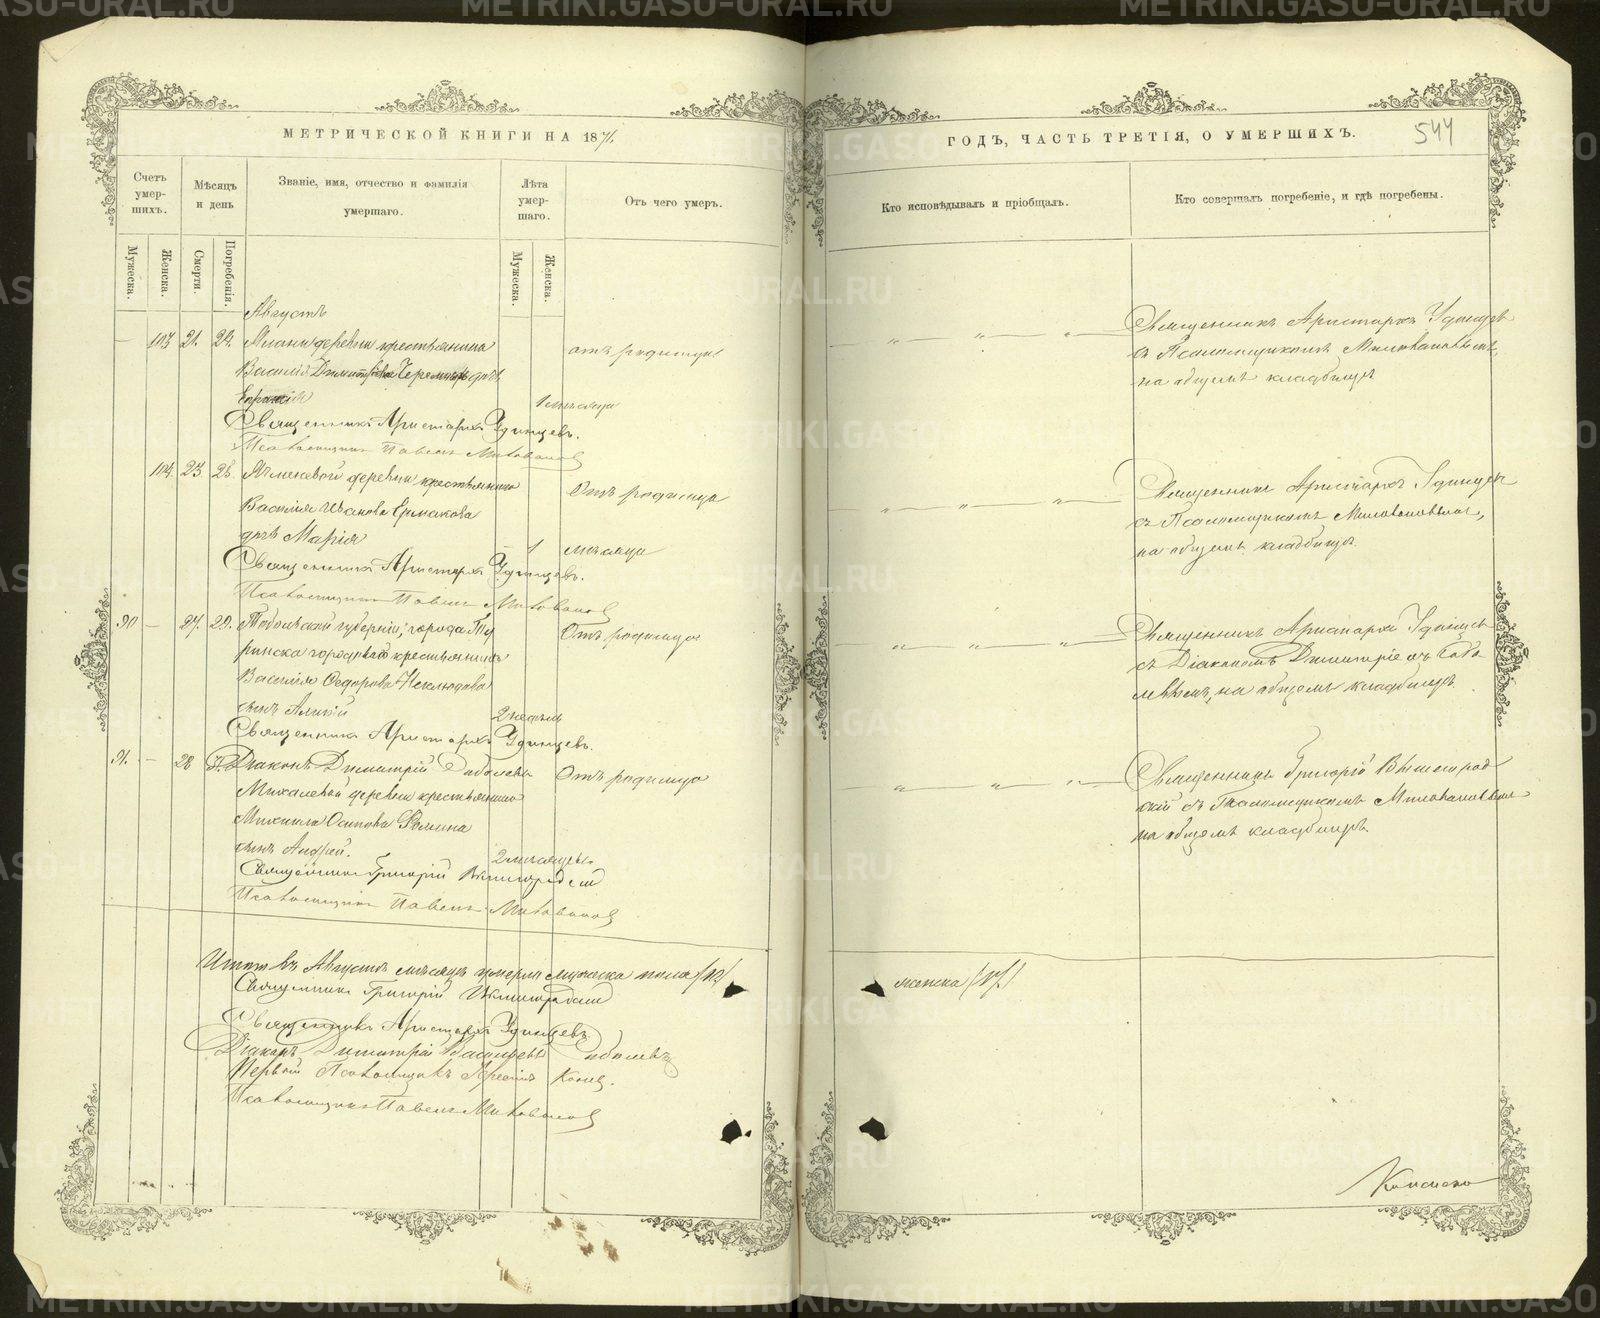 МЕТРИЧЕСКОЙ КНИГИ НА 1871
Счетъ умер-
шихъ.
Мѣсяцъ
и день
Званіе, имя, отчество и фамилія
умершаго.
Лѣта
умер-
шаго.
Отъ чего умеръ.
Мужеска.
Женска.
Смерти.
Погребенія.
Мужеска.
Женска.
Августъ
103 21. 22. деревни крестьянина
отъ родимца
Василія Димитріева дочь
1 мѣсяца
Священникъ Аристархъ Удинцевъ.
Псаломщикъ Павелъ Миловановъ
104. 23. 28. деревни крестьянина
Отъ родимца
Василія Иванова Ермакова
дочь Марія
1 мѣсяца
Священникъ Аристархъ Удинцевъ.
Псаломщикъ Павелъ Миловановъ
90 — 27. 29. Тобольской губерніи, города Ту
Отъ родимца
ринска крестьянина
Василія Федорова Неклюдова
сынъ
2 недѣль
Священникъ Аристархъ Удинцевъ.
91. — 28 Діаконъ Димитрій Соболевъ
Отъ родимца
Михалевой деревни крестьянина
Михаила Осипова Фомина
сынъ Андрей.
2 мѣсяцевъ
Священникъ Григорій Вышегородскій
Псаломщикъ Павелъ Миловановъ
Итого въ Августѣ мѣсяцѣ умерло мужеска пола
Священникъ Григорій Вышегородскій
Священникъ Аристархъ Удинцевъ
Діаконъ Димитрій Васильевъ Соболевъ
Первый Псаломщикъ
Псаломщикъ Павелъ Миловановъ
ГОДЪ, ЧАСТЬ ТРЕТІЯ, О УМЕРШИХЪ.
544
Кто исповѣдывалъ и пріобщалъ.
Кто совершалъ погребеніе, и гдѣ погребены.
Священникъ Аристархъ Удинцевъ
съ Псаломщикомъ Миловановымъ,
на общемъ кладбищѣ
Священникъ Аристархъ Удинцевъ
съ Псаломщикомъ Миловановымъ,
на общемъ кладбищѣ.
Священникъ Аристархъ Удинцевъ
съ Діакономъ Димитріемъ Собо
левымъ, на общемъ кладбищѣ
Священникъ Григорій Вышегород
скій съ Псаломщикомъ Миловановымъ
на общемъ кладбищѣ.
женска
METRIKI.GASO-URAL.RU